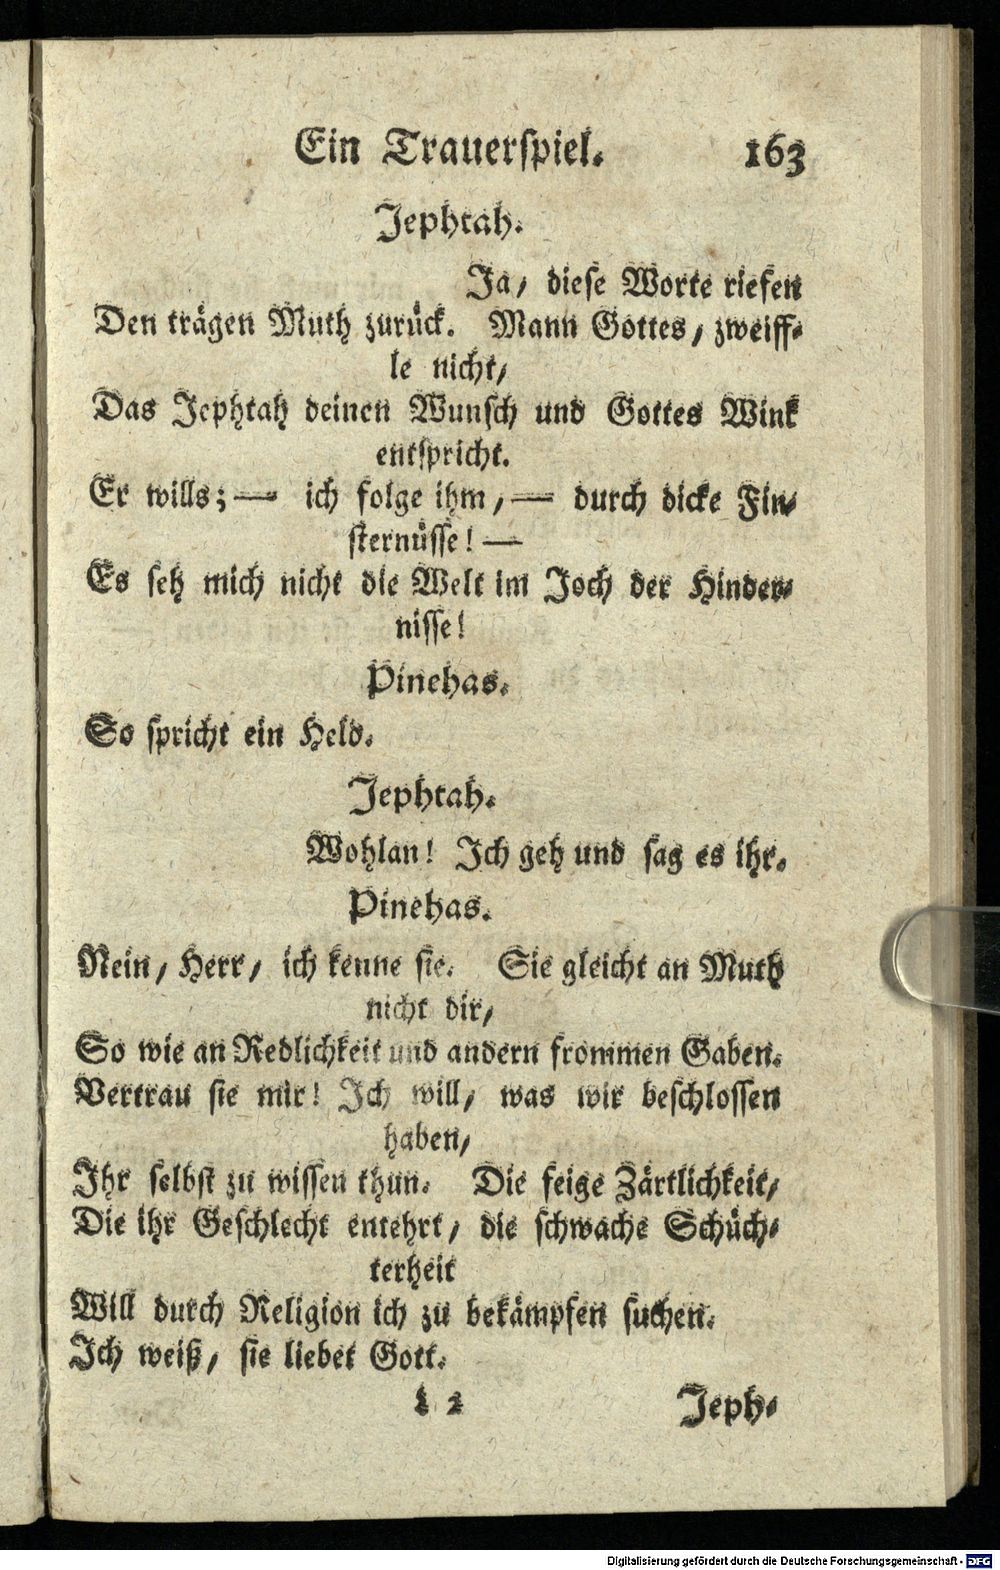 Ein Trauerspiel. 163
Jephtah.
Ja, diese Worte riefen
Den trägen Muth zurück. Mann Gottes, zweiff-
le nicht,
Das Jephtah deinen Wunsch und Gottes Wink
entspricht.
Er wills; — ich folge ihm, — durch dicke Fin-
sternüsse! —
Es seh mich nicht die Welt im Joch der Hinder-
nisse!
Pinehas.
So spricht ein Held.
Jephtah.
Wohlan! Ich geh und sag es ihr.
Pinehas.
Nein, Herr, ich kenne sie. Sie gleicht an Muth
nicht dir,
So wie an Redlichkeit und andern frommen Gaben.
Vertrau sie mir! Ich will, was wir beschlossen
haben,
Ihr selbst zu wissen thun. Die feige Zärtlichkeit,
Die ihr Geschlecht entehrt, die schwache Schüch-
terheit
Will durch Religion ich zu bekämpfen suchen.
Ich weiß, sie liebet Gott.
L 2 Jeph-
Digitalisierung gefördert durch die Deutsche Forschungsgemeinschaft - DFG